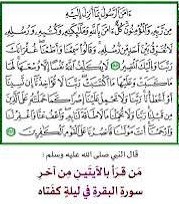 ءَامَنَ ٱلرَّسُولُ بِمَآ أُنزِلَ إِلَيْهِ
مِن رَّبِّهِۦ وَٱلْمُؤْمِنُونَ كُلٌّ ءَامَنَ بِٱللَّهِ وَمَلَٰٓئِكَتِهِۦ وَكُتُبِهِۦ وَرُسُلِهِۦ
لَا نُفَرِّقُ بَيْنَ أَحَدٍ مِّن رُّسُلِهِۦ وَقَالُوا۟ سَمِعْنَا وَأَطَعْنَا غُفْرَانَكَ
رَبَّنَا وَإِلَيْكَ ٱلْمَصِيرُ لَا يُكَلِّفُ ٱللَّهُ نَفْسًا إِلَّا وُسْعَهَا لَهَا
مَا كَسَبَتْ وَعَلَيْهَا مَا ٱكْتَسَبَتْ رَبَّنَا لَا تُؤَاخِذْنَآ إِن نَّسِينَآ
أَوْ أَخْطَأْنَا رَبَّنَا وَلَا تَحْمِلْ عَلَيْنَآ إِصْرًا كَمَا حَمَلْتَهُۥ عَلَى ٱلَّذِينَ
مِن قَبْلِنَا رَبَّنَا وَلَا تُحَمِّلْنَا مَا لَا طَاقَةَ لَنَا بِهِۦ وَٱعْفُ عَنَّا وَٱغْفِرْ لَنَا
وَٱرْحَمْنَآ أَنتَ مَوْلَىٰنَا فَٱنصُرْنَا عَلَى ٱلْقَوْمِ ٱلْكَٰفِرِينَ
قال النبي صلى الله عليه وسلم :
مَن قرأ بالآيتَينِ مِن آخرِ
سورةِ البقرةِ في ليلةٍ كفَتاه